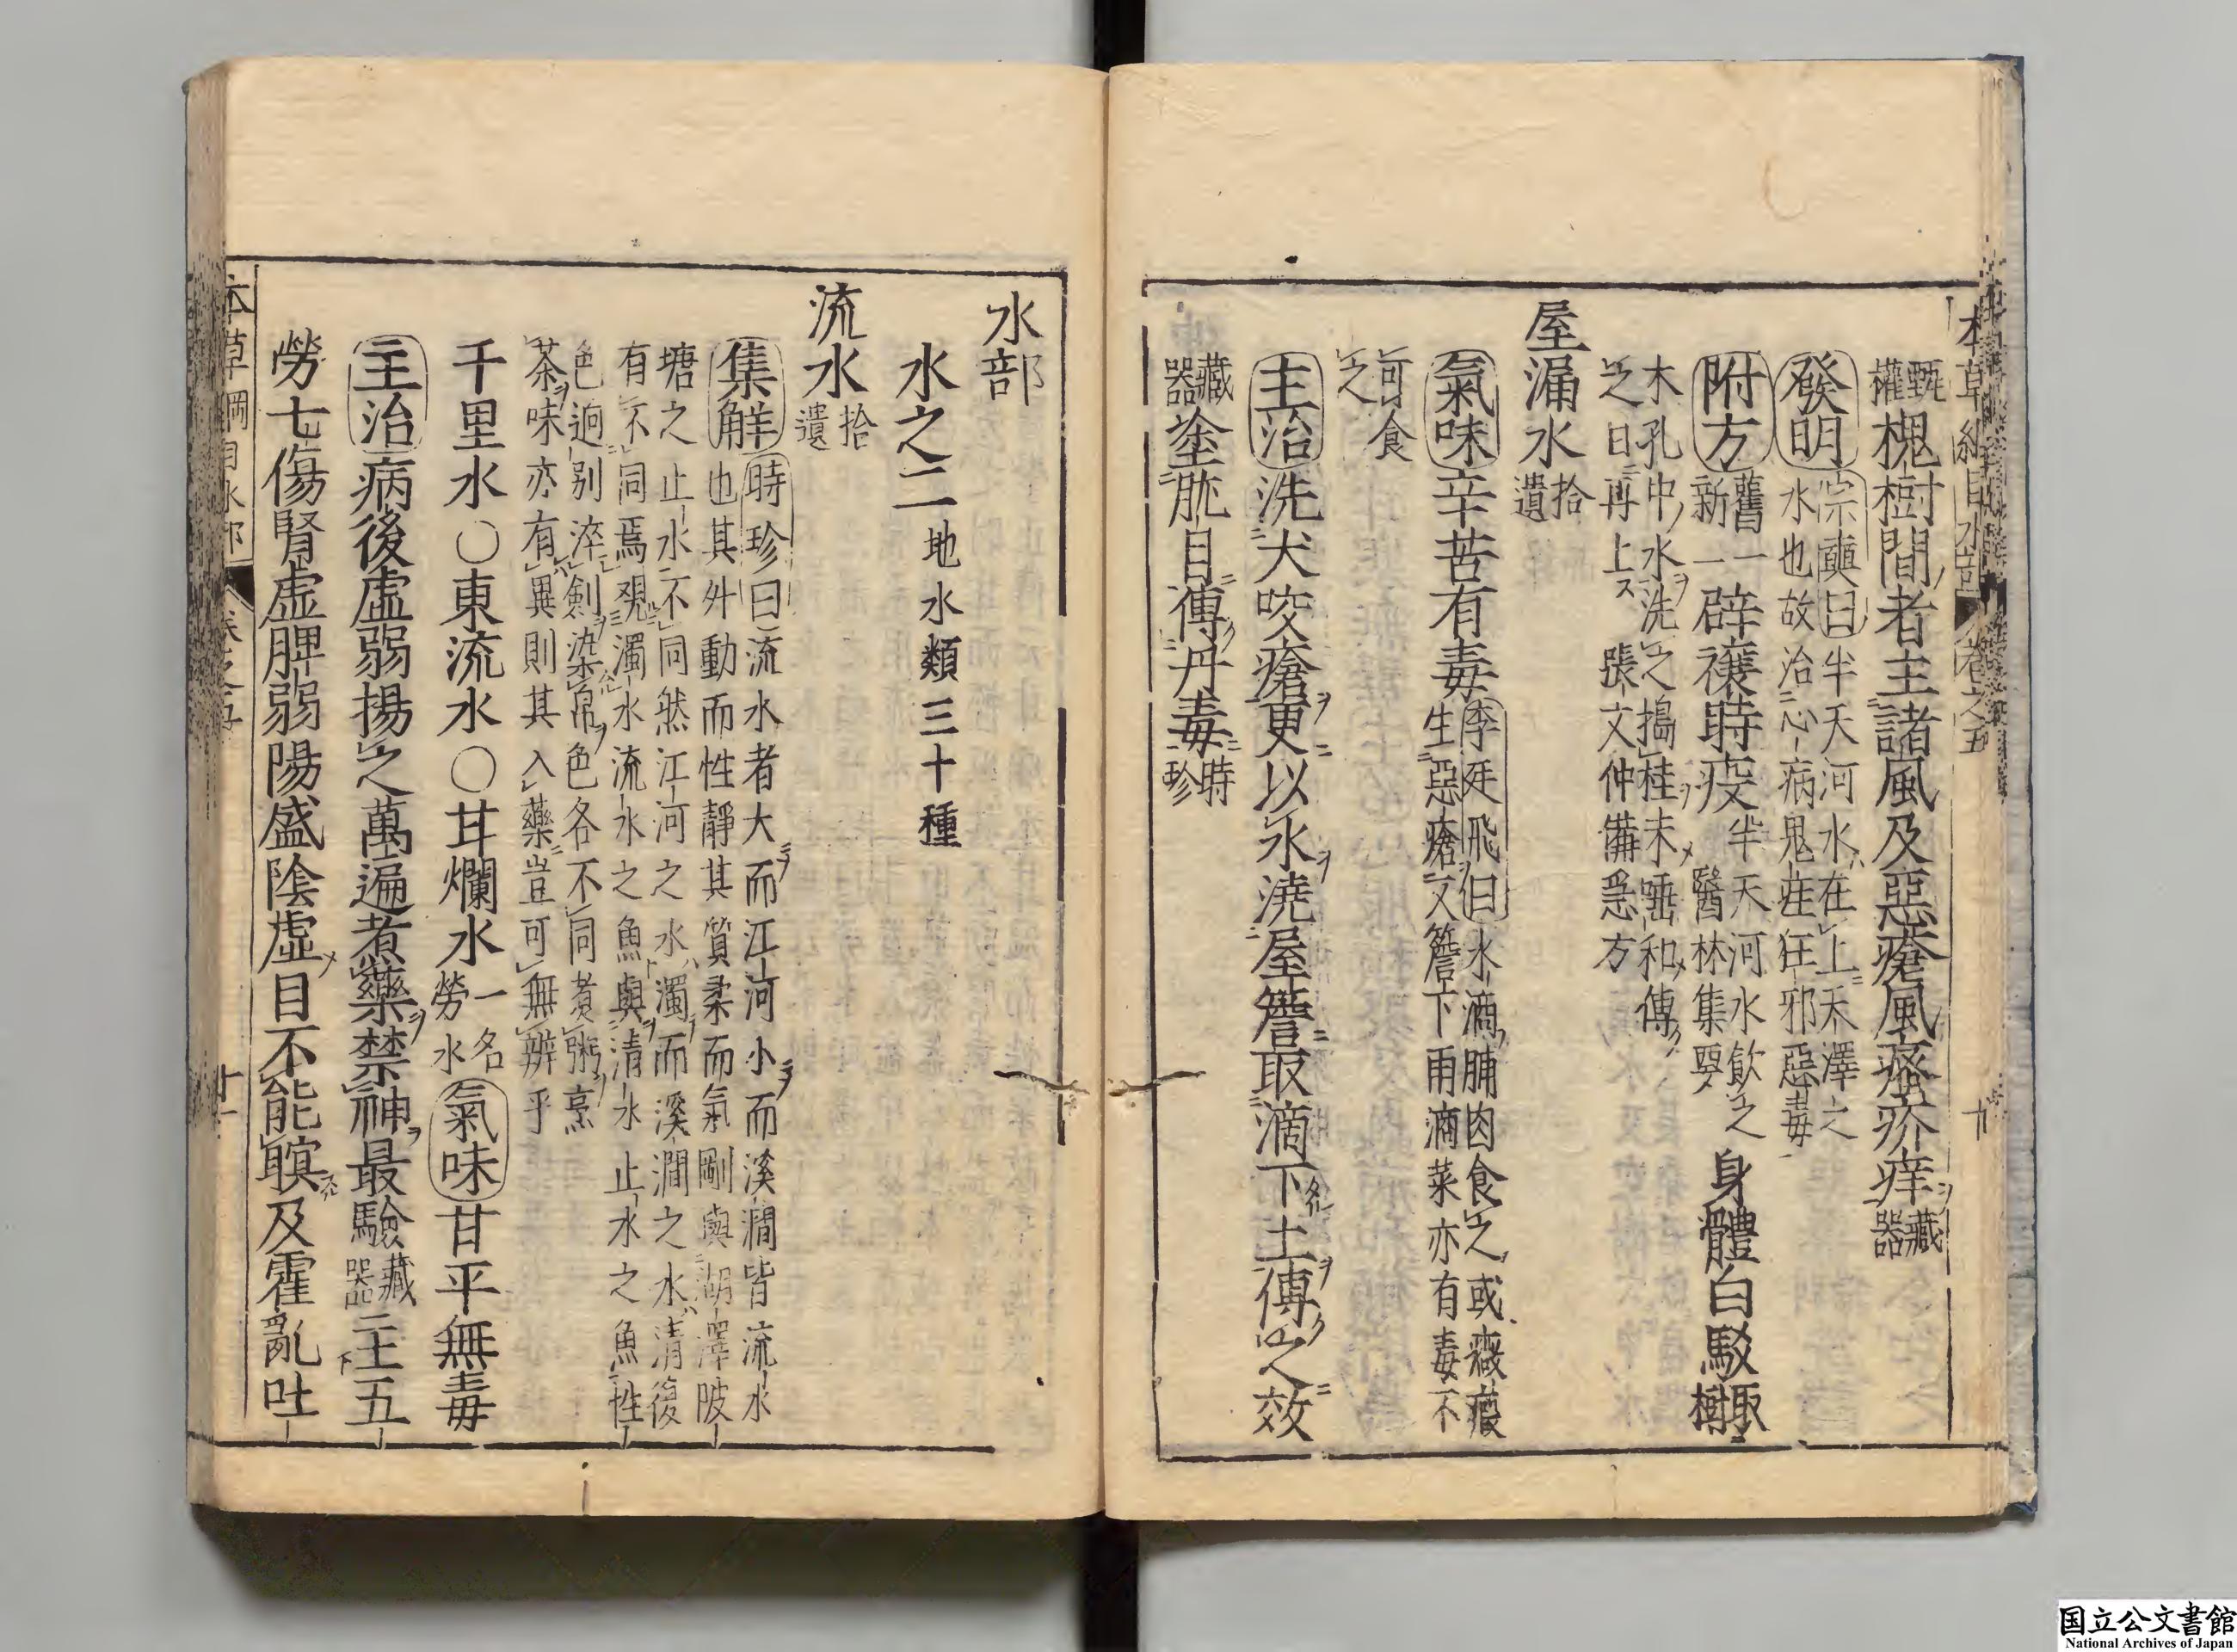 本草綱目水部 卷之五
甄權槐樹間者主諸風及惡瘡風瘙疥痒藏器
發明宗奭曰半天河水在上天澤之
水也故治心病鬼疰狂邪惡毒
附方舊一新一辟禳時疫半天河水飲之
醫林集要身體白駁取樹
木孔中水洗之搗桂末唾和傅
之日再上張文仲備急方
屋漏水拾遺
氣味辛苦有毒李廷飛曰水滴脯肉食之或癥瘕
生惡瘡又簷下雨滴菜亦有毒不
可食之
主治洗犬咬瘡更以水澆屋簷取滴下土傅之效
藏器塗肬目傅丹毒時珍
水部
水之二地水類三十種
流水拾遺
集解時珍曰流水者大而江河小而溪澗皆流水
也其外動而性靜其質柔而氣剛與湖澤陂
塘之止水不同然江河之水濁而溪澗之水清復
有不同焉觀濁水流水之魚與清水止水之魚性
色迥別淬劍染帛色各不同煑粥烹
茶味亦有異則其入藥豈可無辨乎
千里水〇東流水〇甘爛水一名勞水氣味甘平無毒
主治病後虛弱揚之萬遍煮藥禁神最驗藏器主五
勞七傷腎虛脾弱陽盛陰虛目不能瞑及霍亂吐
本草綱目水部 卷之五 十一
国立公文書館
National Archives of Japan